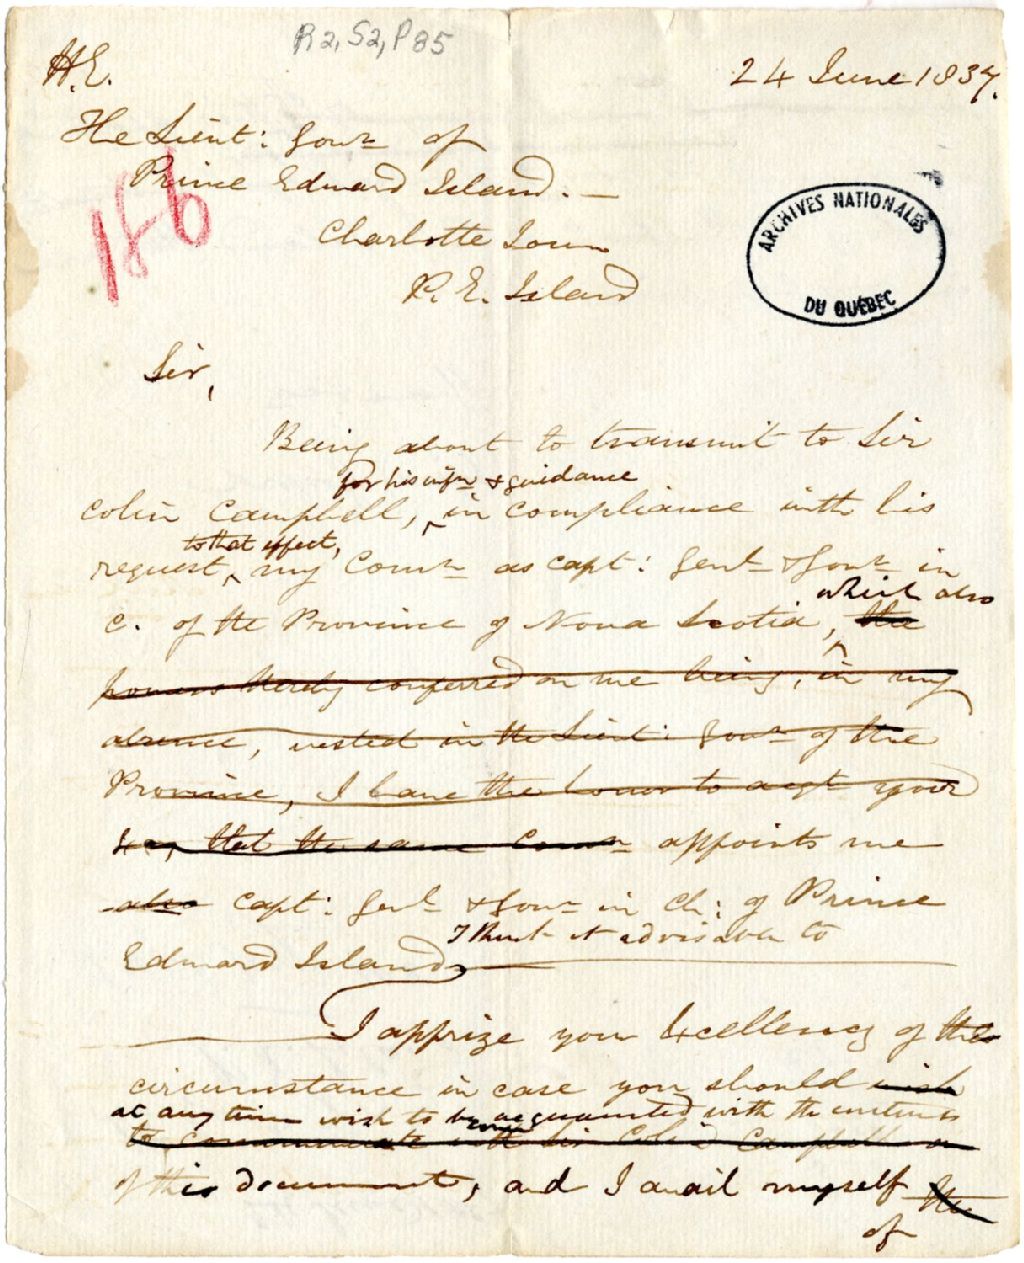 R2, S2, P85
H.E.
24 June 1837.
The Lieut: Govr of
Prince Edward Island. —
186
Charlotte Town
P. E. Island
ARCHIVES NATIONALES
DU QUÉBEC
Sir,
Being about to transmit to Sir
for his infn & guidance
Colin Campbell, ^ in compliance with his
to that effect,
request, ^ my Comn as Capt: Genl & Govr in
which also
C. of the Province of Nova Scotia, ^ the
powers thereby conferred on me being, in my
absence, vested in the Lieut: Govr of the
Province, I have the honor to your
that the same Comn appoints me
also Capt: Genl & Govr in Ch: of Prince
I think it advisable to
Edward Island
I apprize your Excellency of the
circumstance in case you should wish
at any time wish to be acquainted with the contents
to communicate with Sir Colin Campbell on
of this document, and I avail myself the
of